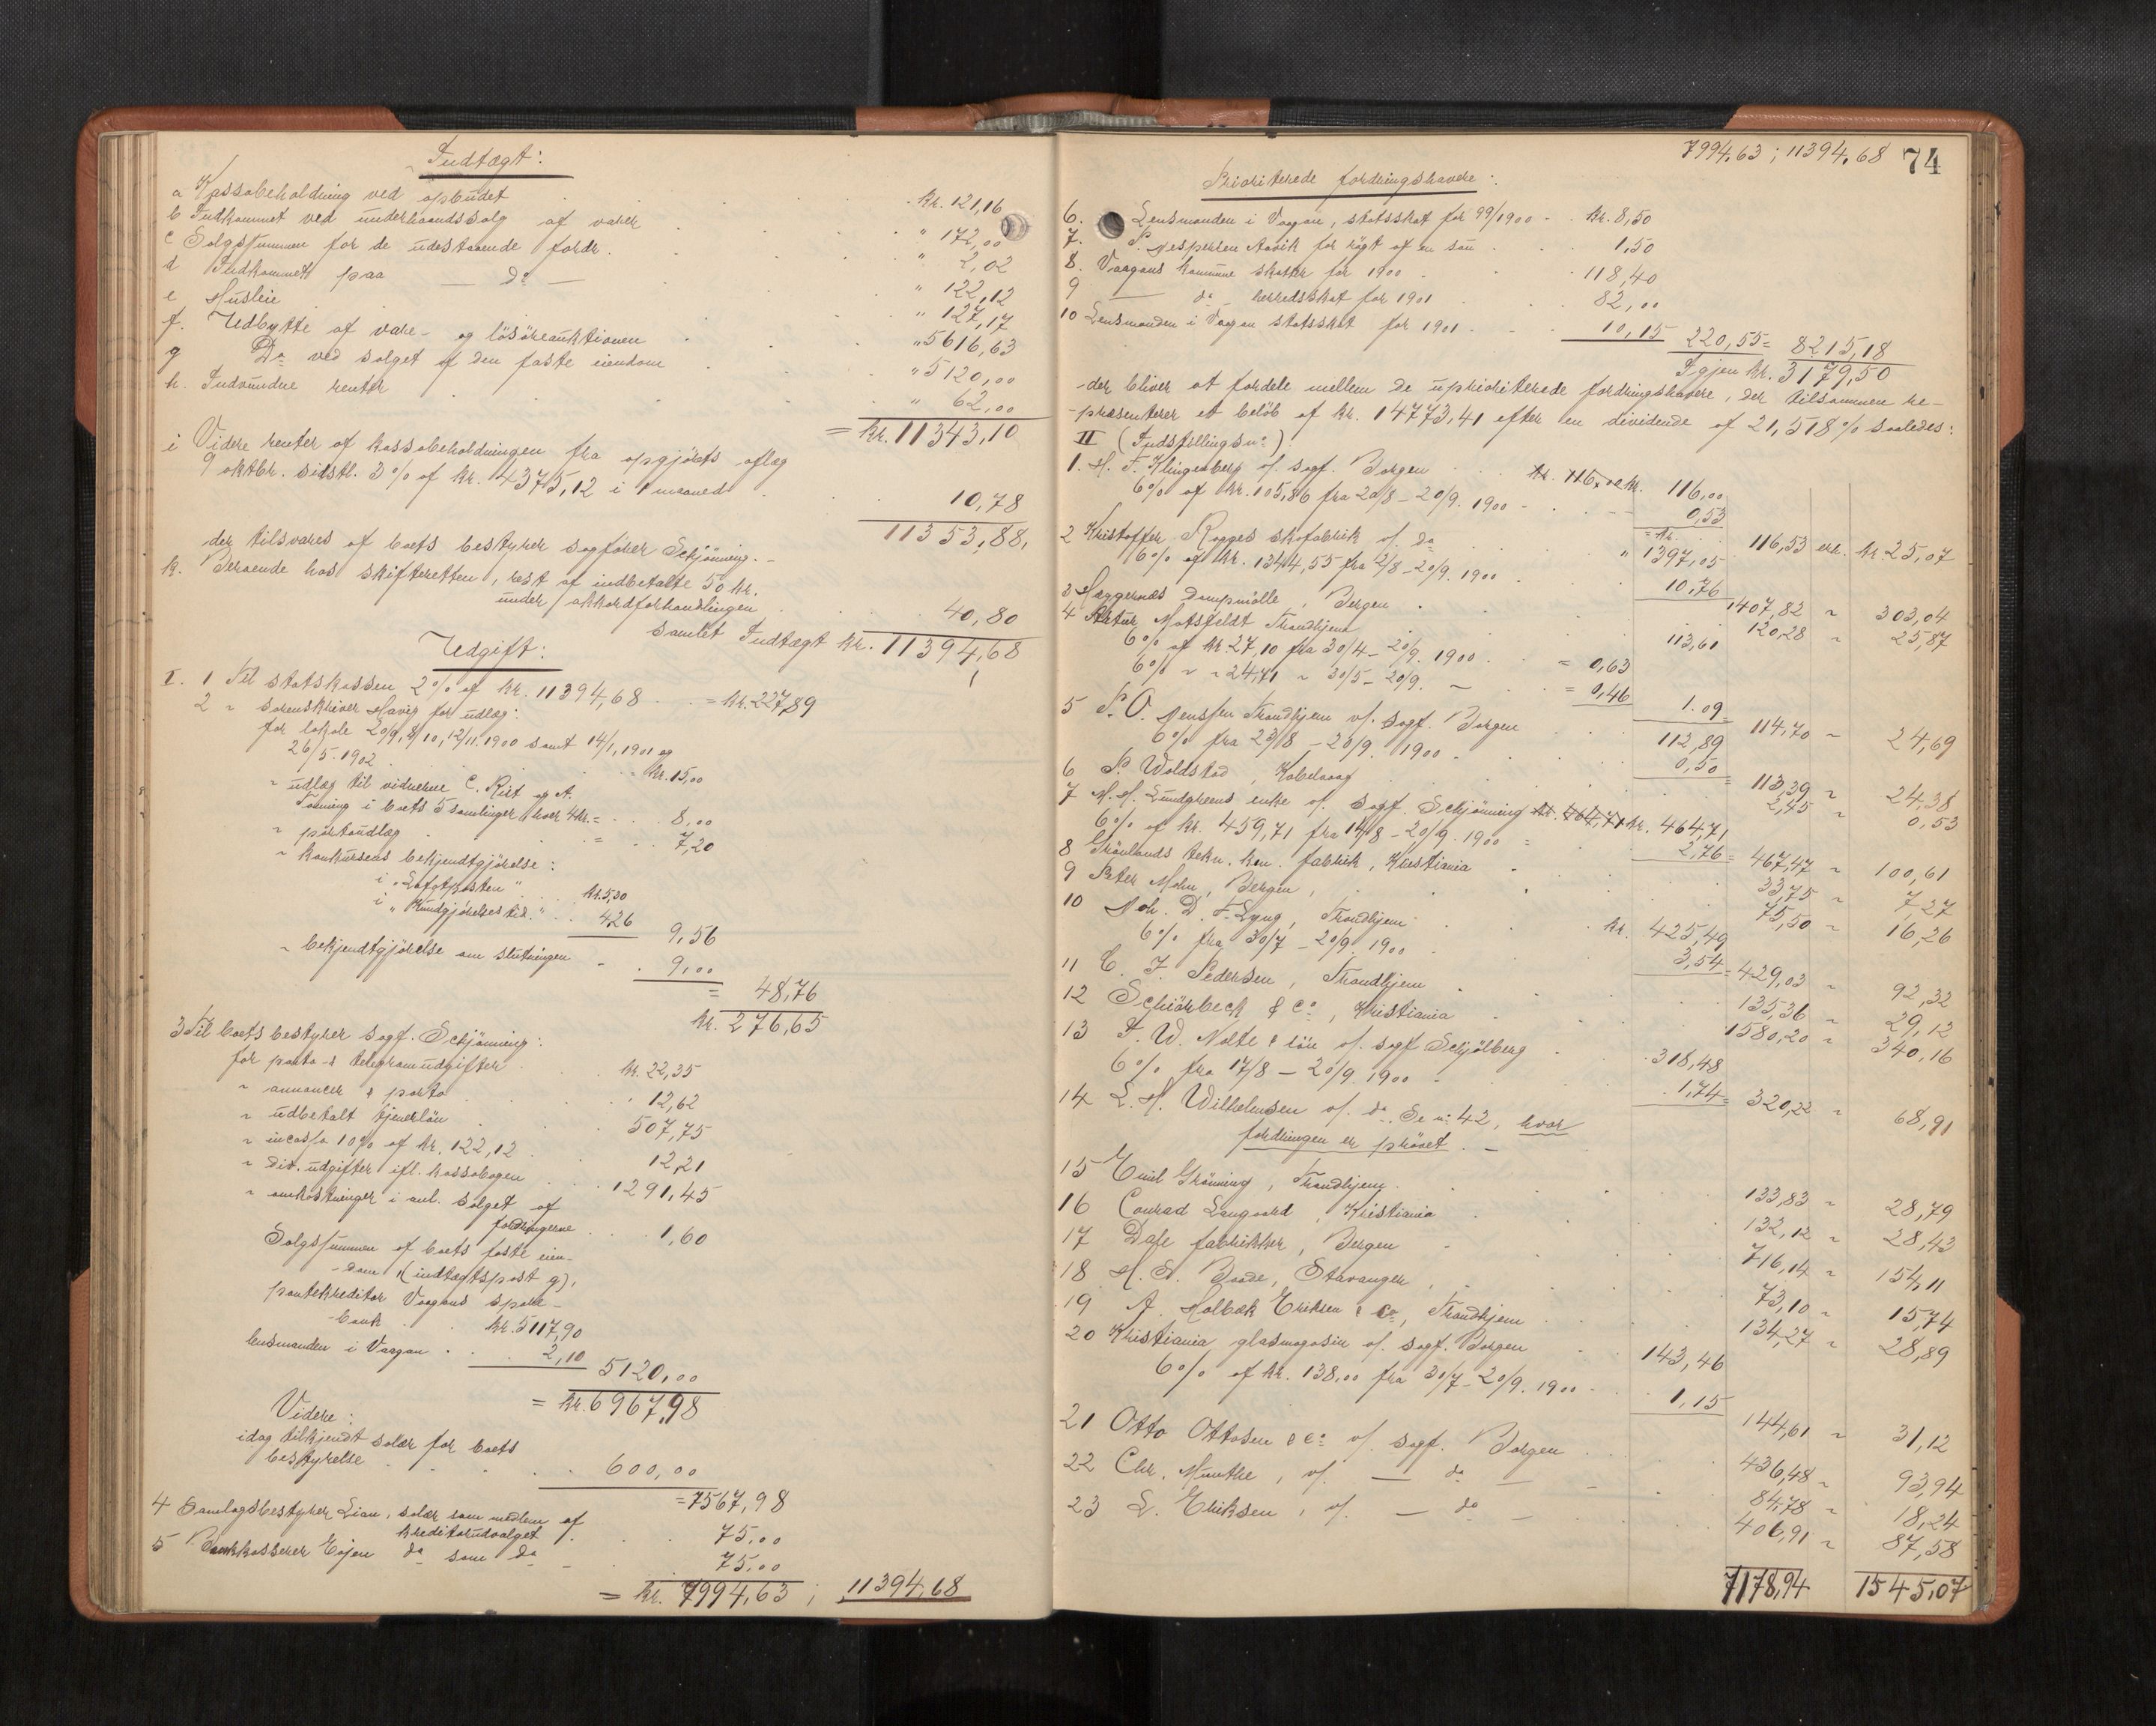 Indtægt:
a Kassabeholdning ved opbudet . . . kr. 121,16
b Indkommet ved underhaandssalg af varer . . " 172,00
c Salgssummen for de udestaaende fordr. . . " 2,02
d Indkommet paa — do — . . " 122,12
e Husleie . . " 127,17
f. Udbytte af vare- og lösöreauktionen . . " 5616,63
g Do ved salget af den faste eiendom . . " 5120,00
h. Indvundne renter . . " 62,00
= kr. 11343,10
i Videre renter af kassabeholdningen fra opgjörets aflæg
9 oktbr. sidstl. 3% af kr. 4375,12 i 1 maaned . . 10,78
11353,88,
der tilsvares af boets bestyrer sagförer Schjönning. -
k. Beroende hos skifteretten, rest af indbetalte 50 kr.
under akkordforhandlingen . . 40,80
samlet Indtægt kr. 11394,68
Udgift:
I. 1 Til statskassen 2% af kr. 11394,68 . . = kr. 227,89
2 " sorenskriver Havig for udlæg:
for lokale 20/9, 8/10, 12/11. 1900 samt 14/1, 1901 og
26/5. 1902 . . kr. 15,00
" udlæg til vidnerne C. Rist og A.
Tönning i boets 5 samlinger hver 4 kr. = . . 8,00
" portoudlæg . . = . . 7,20
" konkursens bekjendtgjörelse:
i "Lofotposten" . . kr. 5,30
i "Kundgjörelsestid." . . 4,26 9,56
" bekjendtgjörelse om slutningen - . 9,00
= 48,76
kr. 276,65
3 Til boets bestyrer sagf. Schjönning:
for porto- & telegramudgifter . kr. 22,35
" annoncer & porto . . 12,62
" udbetalt tjenerlön . . 507,75
" incasso 10% af kr. 122,12 . . 12,21
" div. udgifter ifl. kassabogen . . 1291,45
" omkostninger i anl. salget af
fordringerne . . 1,60
Salgssummen af boets faste eien-
-dom (indtægtspost g),
pantekreditor Vaagans spare-
-bank . . kr. 5117,90
lensmanden i Vaagan . . . 2,10 5120,00
= kr. 6967,98
Videre:
idag tilkjendt salær for boets
bestyrelse . . . 600,00
= 7567,98
4 Samlagsbestyrer Lian, salær som medlem af
kreditorudvalget . . 75,00
5 Bankkasserer Eojen do som do - . 75,00
= kr. 7994,63 ; 11394,68
7994,63 ; 11394,68 74
Prioriterede fordringshavere:
6. Lensmanden i Vaagan, statsskat for 99/1900 - . kr. 8,50
7. P. Jespersen Aavik for rögt af en sau . . 1,50
8. Vaagans kommune skatter for 1900 . . 118,40
9 — do — herredsskat for 1901 . . 82,00
10 Lensmanden i Vaagan statsskat for 1901 . . 10,15 220,55 = 8215,18
Igjen kr. 3179,50
-der bliver at fordele mellem de uprioriterede fordringshavere, der tilsammen re-
-præsenterer et belöb af kr. 14773,41 efter en dividende af 21,518% saaledes:
II (Indstillingsno)
1. H. F. Klingenberg v/. sagf. Borgen . . kr. 116,00 kr. 116,00
6% af kr. 105,86 fra 20/8 - 20/9. 1900 - . . 0,53
= kr. 116,53 erh. kr 25,07
2 Kristoffer Rogges skofabrik v/. do . . " 1397,05
6% af kr. 1344,55 fra 2/8 - 20/9. 1900 . . 10,76
1407,82 " 303,04
3 Vaggernæs dampmölle, Bergen . . 120,28 " 25,87
4 Artur Motzfeldt Trondhjem . . 113,61
6% af kr. 27,10 fra 30/4 - 20/9. 1900 . . = 0,63
6% " " 24,71 " 30/5 - 20/9. - . . = 0,46 1.09
114,70 " 24,69
5 P. O. Jenssen Trondhjem v/. sagf. Borgen . . 112,89
6% fra 23/8 - 20/9. 1900 - . . 0,50
= 113,39 " 24,38
6 P. Woldstad, Kabelvaag . . 2,45 " 0,53
7 M. H. Lundgreens enke v/. sagf. Schjönning kr. 464,71 kr. 464,71
6% af kr. 459,71 fra 14/8 - 20/9. 1900 = 2,76 = 467,47 " 100,61
8 Grönlands tekn. kem. fabrik, Kristiania . . 33,75 " 7,27
9 Peter Mohn, Bergen, . . 75,50 " 16,26
10 Joh. D. F. Lyng, Trondhjem . . kr. 425,49
6% fra 30/7 - 20/9. 1900 . . 3,54 = 429,03 " 92,32
11 C. J. Pedersen, Trondhjem . . 135,36 " 29,12
12 Schiörbeck & Co, Kristiania . . 1580,20 " 340,16
13 F. W. Nolte & sön v/. sagf Schjölberg . . 318,48
6% fra 17/8 - 20/9. 1900 - . . 1,74 = 320,22 " 68,91
14 L. H. Wilhelmsen v/. do. Se no: 42, hvor
fordringen er prövet. -
15 Emil Grönning, Trondhjem . . 133,83 " 28,79
16 Conrad Langaard, Kristiania . . 132,12 " 28,43
17 Dale fabrikker, Bergen . . 716,14 " 154,11
18 H. A. Boode, Stavanger, . . 73,10 " 15,74
19 A. Holbæk Eriksen & Co, Trondhjem . . 134,27 " 28,89
20 Kristiania glasmagasin v/. sagf. Borgen . . 143,46
6% af kr. 138,00 fra 30/7 - 20/9. 1900 . . 1,15
144,61 " 31,12
21 Otto Ottosen & Co v/. sagf. Borgen . . 436,48 " 93,94
22 Chr. Munthe, v/. — do — . . 84,78 " 18,24
23 L. Eriksen, v/. — do — . . 406,91 " 87,58
7178,94 1545,07